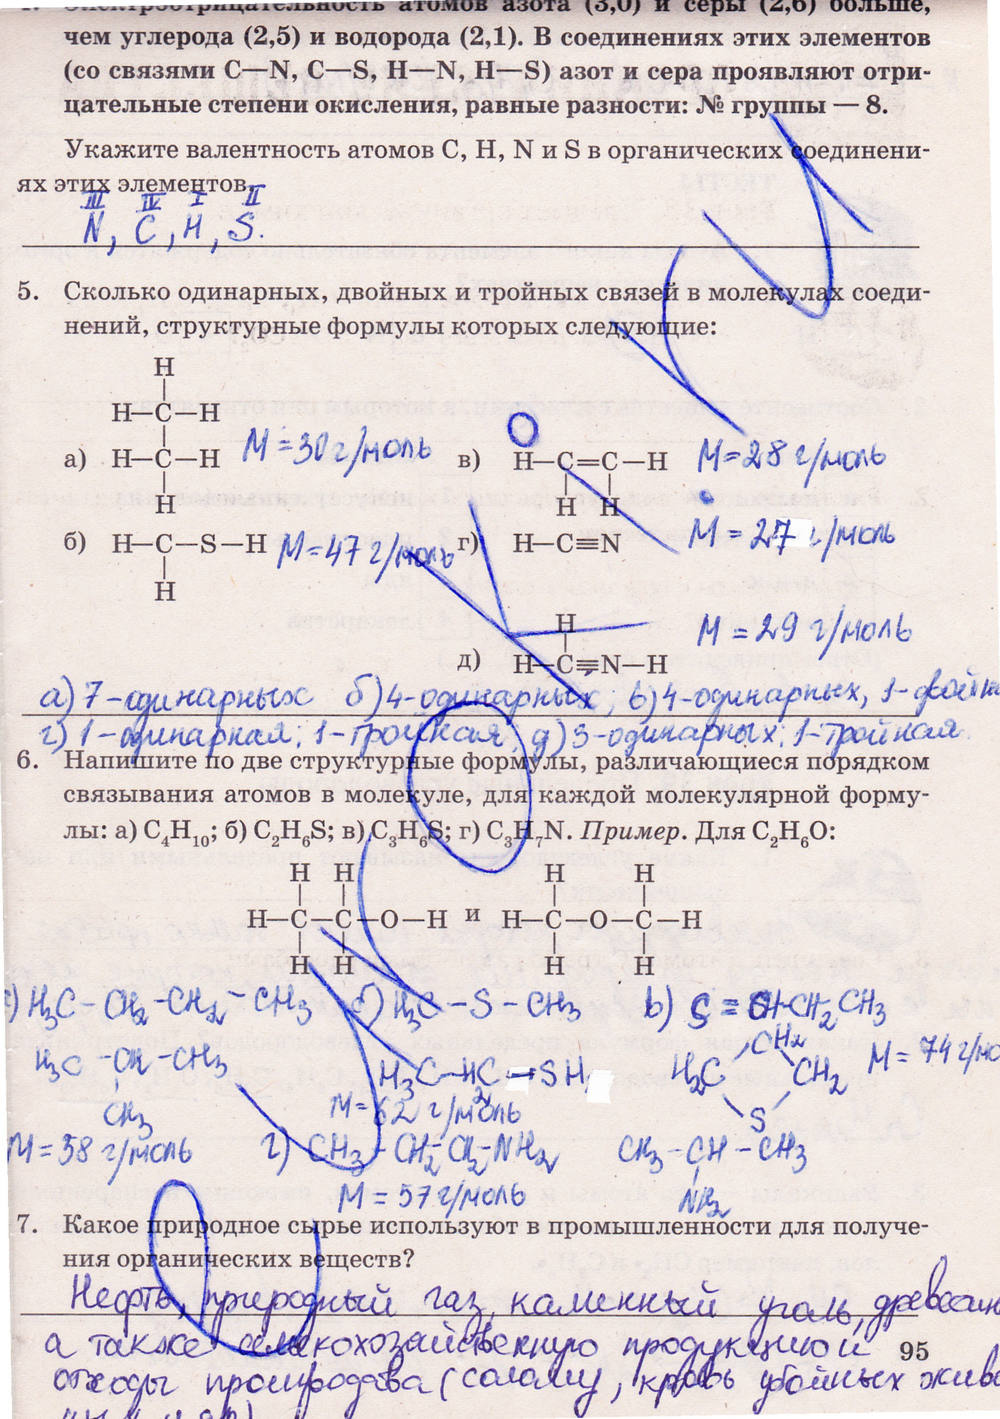 4. Электроотрицательность атомов азота (3,0) и серы (2,6) больше,
чем углерода (2,5) и водорода (2,1). В соединениях этих элементов
(со связями C—N, C—S, H—N, H—S) азот и сера проявляют отри-
цательные степени окисления, равные разности: № группы — 8.
Укажите валентность атомов C, H, N и S в органических соединени-
ях этих элементов.
III IV I II
N, C, H, S.
5. Сколько одинарных, двойных и тройных связей в молекулах соеди-
нений, структурные формулы которых следующие:
H
H—C—H
а) H—C—H M = 30 г/моль в) H—C=C—H M = 28 г/моль
H H H
б) H—C—S—H M = 47 г/моль г) H—C≡N M = 27 г/моль
H
H
д) H—C≡N—H M = 29 г/моль
а) 7-одинарных б) 4-одинарных; в) 4-одинарных, 1-двойна
г) 1-одинарная; 1-тройная; д) 3-одинарных; 1-тройная
6. Напишите по две структурные формулы, различающиеся порядком
связывания атомов в молекуле, для каждой молекулярной форму-
лы: а) C₄H₁₀; б) C₂H₆S; в) C₃H₆S; г) C₃H₇N. Пример. Для C₂H₆O:
H H H H
H—C—C—O—H и H—C—O—C—H
H H H H
) H₃C – CH₂ – CH₂ – CH₃ б) H₃C – S – CH₃ в) S = CH-CH₂CH₃
H₃C – CH – CH₃ H₃C – HC – SH H₂C CH₂ CH₂ M = 74 г/мо
CH₃ M = 62 г/моль S
M = 58 г/моль г) CH₃ – CH₂ – CH₂ – NH₂ CH₃ – CH – CH₃
M = 57 г/моль NH₂
7. Какое природное сырье используют в промышленности для получе-
ния органических веществ?
Нефть, природный газ, каменный уголь, древесин
а также сельскохозяйственную продукцию и
отходы (солому, кровь убойных живо
95